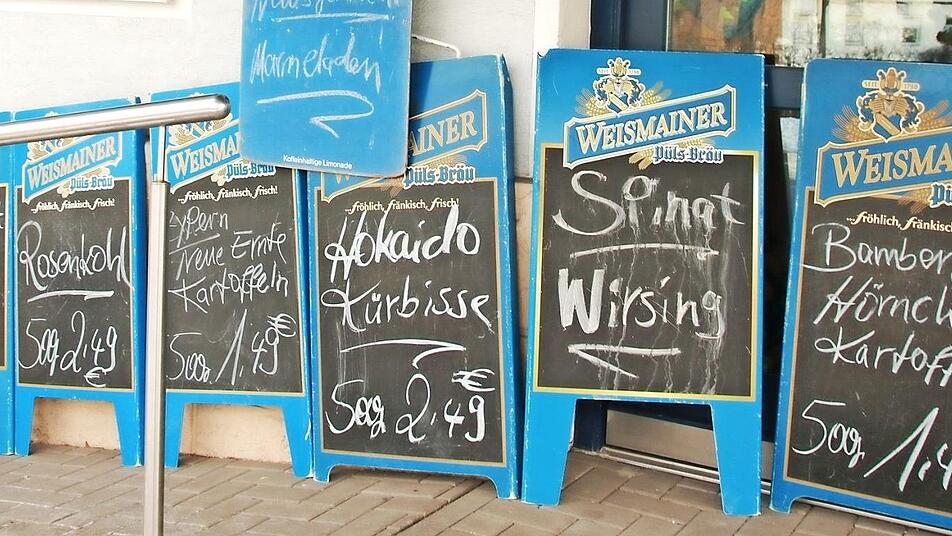 Marmeladen
Koffeinhaltige Limonade
WEISMAINER
Püls-Bräu
...fröhlich, fränkisch, frisch!
Rosenkohl
500g 2,49
€
WEISMA
Püls-Bräu
...fröhlich, fränkisch, frisch!
Neue Ernte
Kartoffeln
500g 1,49 €
AINER
Püls-Bräu
...fröhlich, fränkisch, frisch!
Hokaido
Kürbisse
500g 2,49 €
SEIT 1798
WEISMAINER
Püls-Bräu
Spinat
Wirsing
SEIT 1798
WEISMA
Pü
...fröhlich, fränkisch
Bamber
Hörnch
Kartoff
500g 1,4